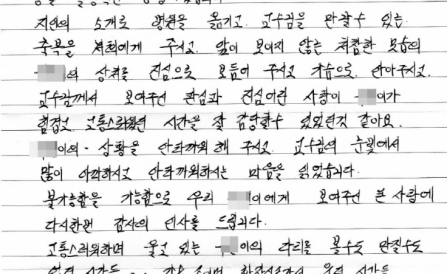 지인의 소개로 병원을 옮기고. 교수님을 만날수 있는
축복을 저희에게 주시고. 앞이 보이지 않는 처참한 모습의
의 상처를 진심으로 보듬어 주시고 가슴으로. 안아주시고.
교수님께서 보여주신 관심과 진심어린 사랑이 이가
힘겹고 고통스러웠던 시간을 잘 감당할수 있었던것 같아요.
이의 상황을 안타까워 해 주시고. 교수님의 눈빛에서
많이 아파하시고 안타까워하시는 마음을 읽었습니다.
불가능함을 가능함으로 우리 이에게 보여주신 큰 사랑에
다시한번 감사의 인사를 드립니다.
고통스러워하며 울고 있는 이의 다리를 볼수도 만질수도